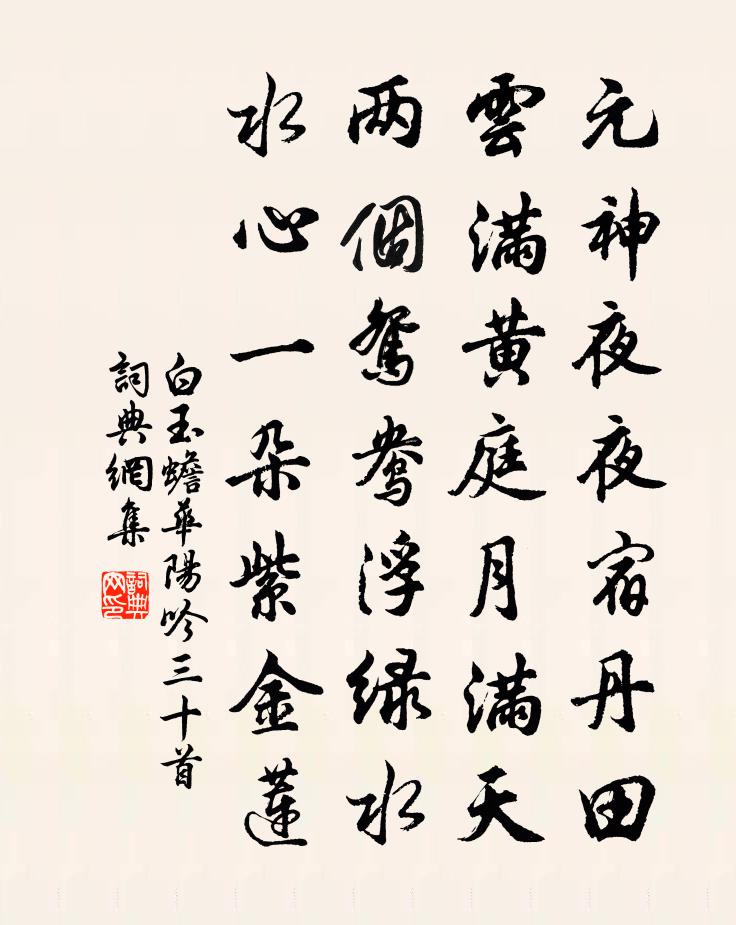 元神夜夜宿丹田
雲滿黃庭月滿天
两個鴛鴦浮緑水
水心一朵紫金蓮
白玉蟾華陽吟三十首
詞典網集
詞典网印